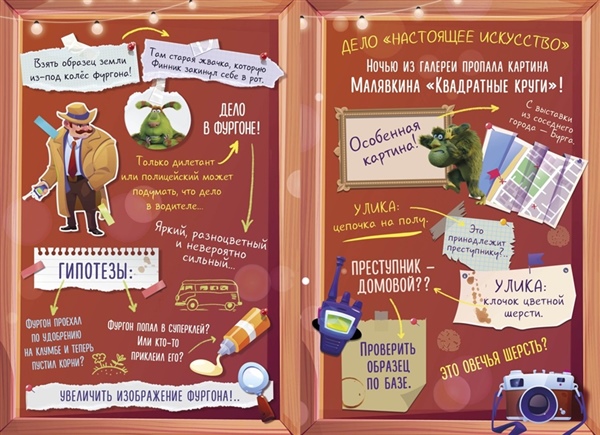 Взять образец земли
из-под колёс фургона!
Там старая жвачка, которую
Финник закинул себе в рот.
ДЕЛО
В ФУРГОНЕ!
Только дилетант
или полицейский может
подумать, что дело
в водителе...
Яркий, разноцветный
и невероятно
сильный...
ГИПОТЕЗЫ:
ФУРГОН ПРОЕХАЛ
ПО УДОБРЕНИЮ
НА КЛУМБЕ И ТЕПЕРЬ
ПУСТИЛ КОРНИ?
ФУРГОН ПОПАЛ В СУПЕРКЛЕЙ?
ИЛИ КТО-ТО
ПРИКЛЕИЛ ЕГО?
УВЕЛИЧИТЬ ИЗОБРАЖЕНИЕ ФУРГОНА!..
ДЕЛО «НАСТОЯЩЕЕ ИСКУССТВО»
НОЧЬЮ ИЗ ГАЛЕРЕИ ПРОПАЛА КАРТИНА
МАЛЯВКИНА «КВАДРАТНЫЕ КРУГИ»!
С выставки
из соседнего
города — Бурга.
Особенная
картина!
УЛИКА:
цепочка на полу.
Это
принадлежит
преступнику?..
ПРЕСТУПНИК –
ДОМОВОЙ??
УЛИКА:
клочок цветной
шерсти.
ПРОВЕРИТЬ
ОБРАЗЕЦ
ПО БАЗЕ.
ЭТО ОВЕЧЬЯ ШЕРСТЬ?